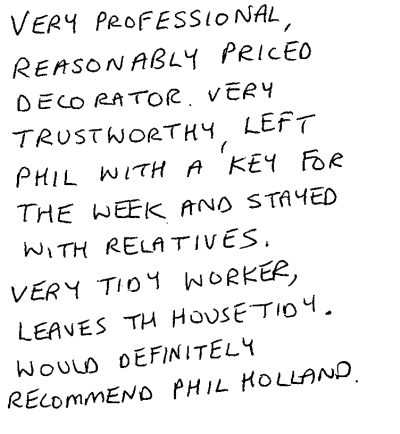 VERY PROFESSIONAL,
REASONABLY PRICED
DECORATOR. VERY
TRUSTWORTHY, LEFT
PHIL WITH A KEY FOR
THE WEEK AND STAYED
WITH RELATIVES.
VERY TIDY WORKER,
LEAVES TH HOUSE TIDY.
WOULD DEFINITELY
RECOMMEND PHIL HOLLAND.